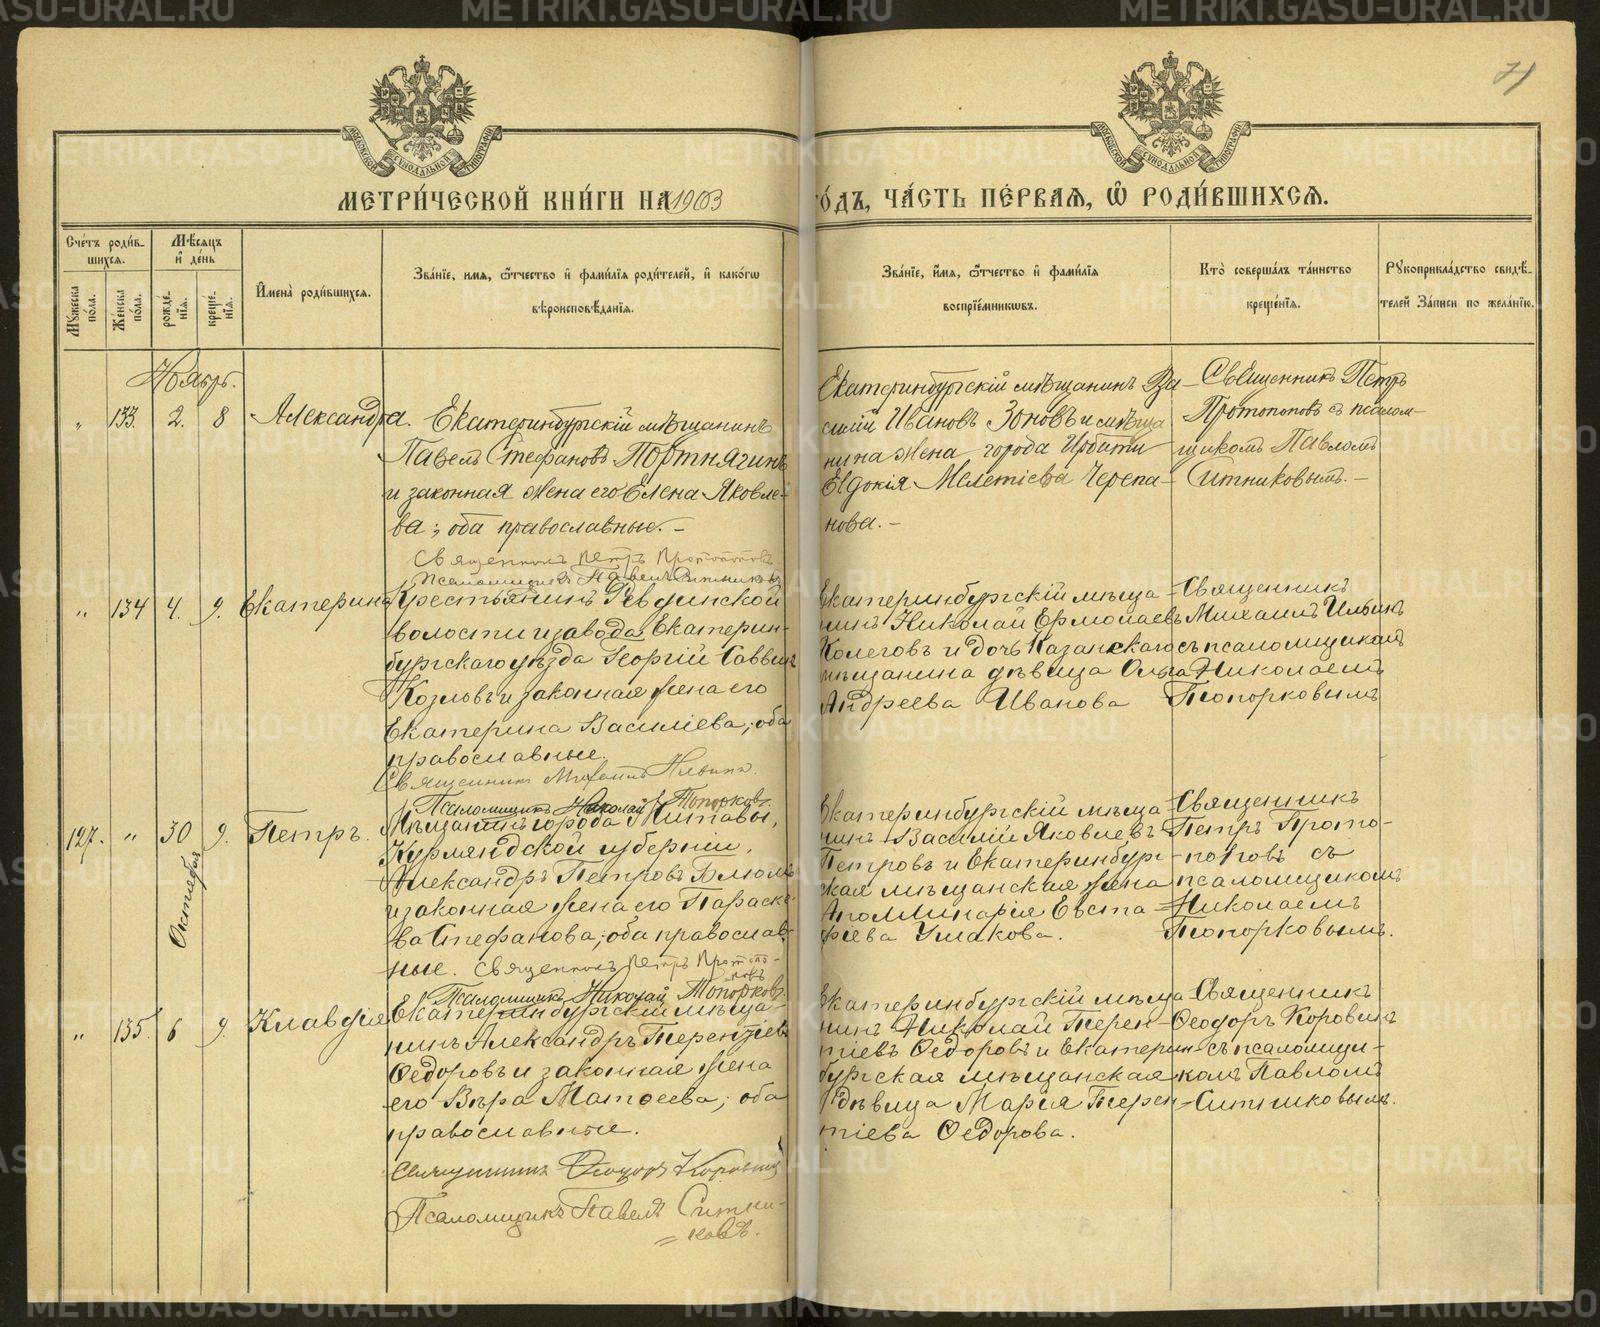 METRIKI.GASO-URAL.RU
71
МОСКОВСКОЙ СѴНОДАЛЬНОЙ ТИПОГРАФІИ
МОСКОВСКОЙ СѴНОДАЛЬНОЙ ТИПОГРАФІИ
МЕТРИ́ЧЕСКОЙ КНИ́ГИ НА 1903
ГО́ДЪ, ЧА́СТЬ ПЕ́РВАЯ, Ѿ РОДИ́ВШИХСЯ.
Сче́тъ роди́в-
шихся.
Мꙋжеска по́ла.
Же́нска по́ла.
Мѣ́сяцъ
и҆ де́нь
рожде́-
нїя.
креще́-
нїя.
И҆мена̀ роди́вшихся.
Зва́нїе, и҆мя, ѻ҆́тчество и҆ фами́лїя роди́телей, и҆ како́гѡ
вѣроисповѣ́данїя.
Зва́нїе, и҆́мя, ѻ҆́тчество и҆ фами́лїя
воспрїе́мникѡвъ.
Кто̀ соверша́лъ та́инство
креще́нїя.
Рꙋкоприкла́дство свидѣ́-
телей за́писи по жела́нїю.
Ноябрь.
„ 133. 2. 8 Александра.
Екатеринбургскій мѣщанинъ
Павелъ Стефановъ Портнягинъ
и законная жена его Елена Яковле-
ва; оба православные. –
Священникъ Петръ Протопоповъ
Псаломщикъ Павелъ Ситниковъ
Екатеринбургскій мѣщанинъ Ва-
силій Ивановъ Зоновъ и мѣща
нина жена города Ирбити
Евдокія Мелетіева Черепа-
нова. –
Священникъ Петръ
Протопоповъ съ псалом-
щикомъ Павломъ
Ситниковымъ. –
„ 134 4. 9. Екатерина
Крестьянинъ Ревдинской
волости и завода, Екатерин-
бургскаго уѣзда Георгій Саввинъ
Козловъ и законная жена его
Екатерина Василіева; оба
православные.
Священникъ Михаилъ Ильинъ.
Псаломщикъ Николай Топорковъ.
Екатеринбургскій мѣща-
нинъ Николай Ермолаевъ
Колеговъ и дочь Казанскаго
мѣщанина дѣвица Ольга
Андреева Иванова
Священникъ
Михаилъ Ильинъ
съ псаломщикомъ
Николаемъ
Топорковымъ
127. „ 30 Октября 9. Петръ.
Мѣщанинъ города Митавы,
Курляндской губерніи,
Александръ Петровъ Блюмъ
и законная жена его Параске-
ва Стефанова; оба православ-
ные. Священникъ Петръ Протопо-
повъ
Псаломщикъ Николай Топорковъ
Екатеринбургскій мѣща-
нинъ Василій Яковлевъ
Петровъ и Екатеринбург-
ская мѣщанская жена
Аполлинарія Евста-
фіева Ушакова.
Священникъ
Петръ Прото-
поповъ съ
псаломщикомъ
Николаемъ
Топорковымъ.
„ 135. 6 9. Клавдія
Екатеринбургскій мѣща-
нинъ Александръ Терентіевъ
Ѳедоровъ и законная жена
его Вѣра Матѳеева; оба
православные.
Священникъ Ѳеодоръ Коровинъ
Псаломщикъ Павелъ Ситни-
ковъ.
Екатеринбургскій мѣща-
нинъ Николай Терен-
тіевъ Ѳедоровъ и Екатерин-
бургская мѣщанская
дѣвица Марія Терен-
тіева Ѳедорова.
Священникъ
Ѳеодоръ Коровинъ
съ псаломщи-
комъ Павломъ
Ситниковымъ.